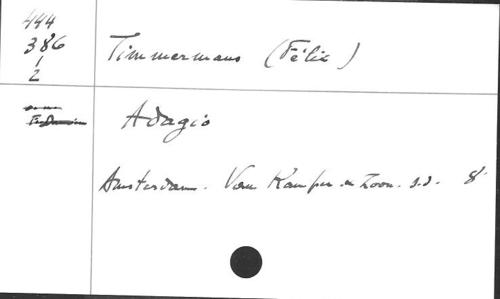 444
386
1
2
Timmermans (Félix)
Adagio
Amsterdam. Van Kampen en Zoon. s.d. 8°